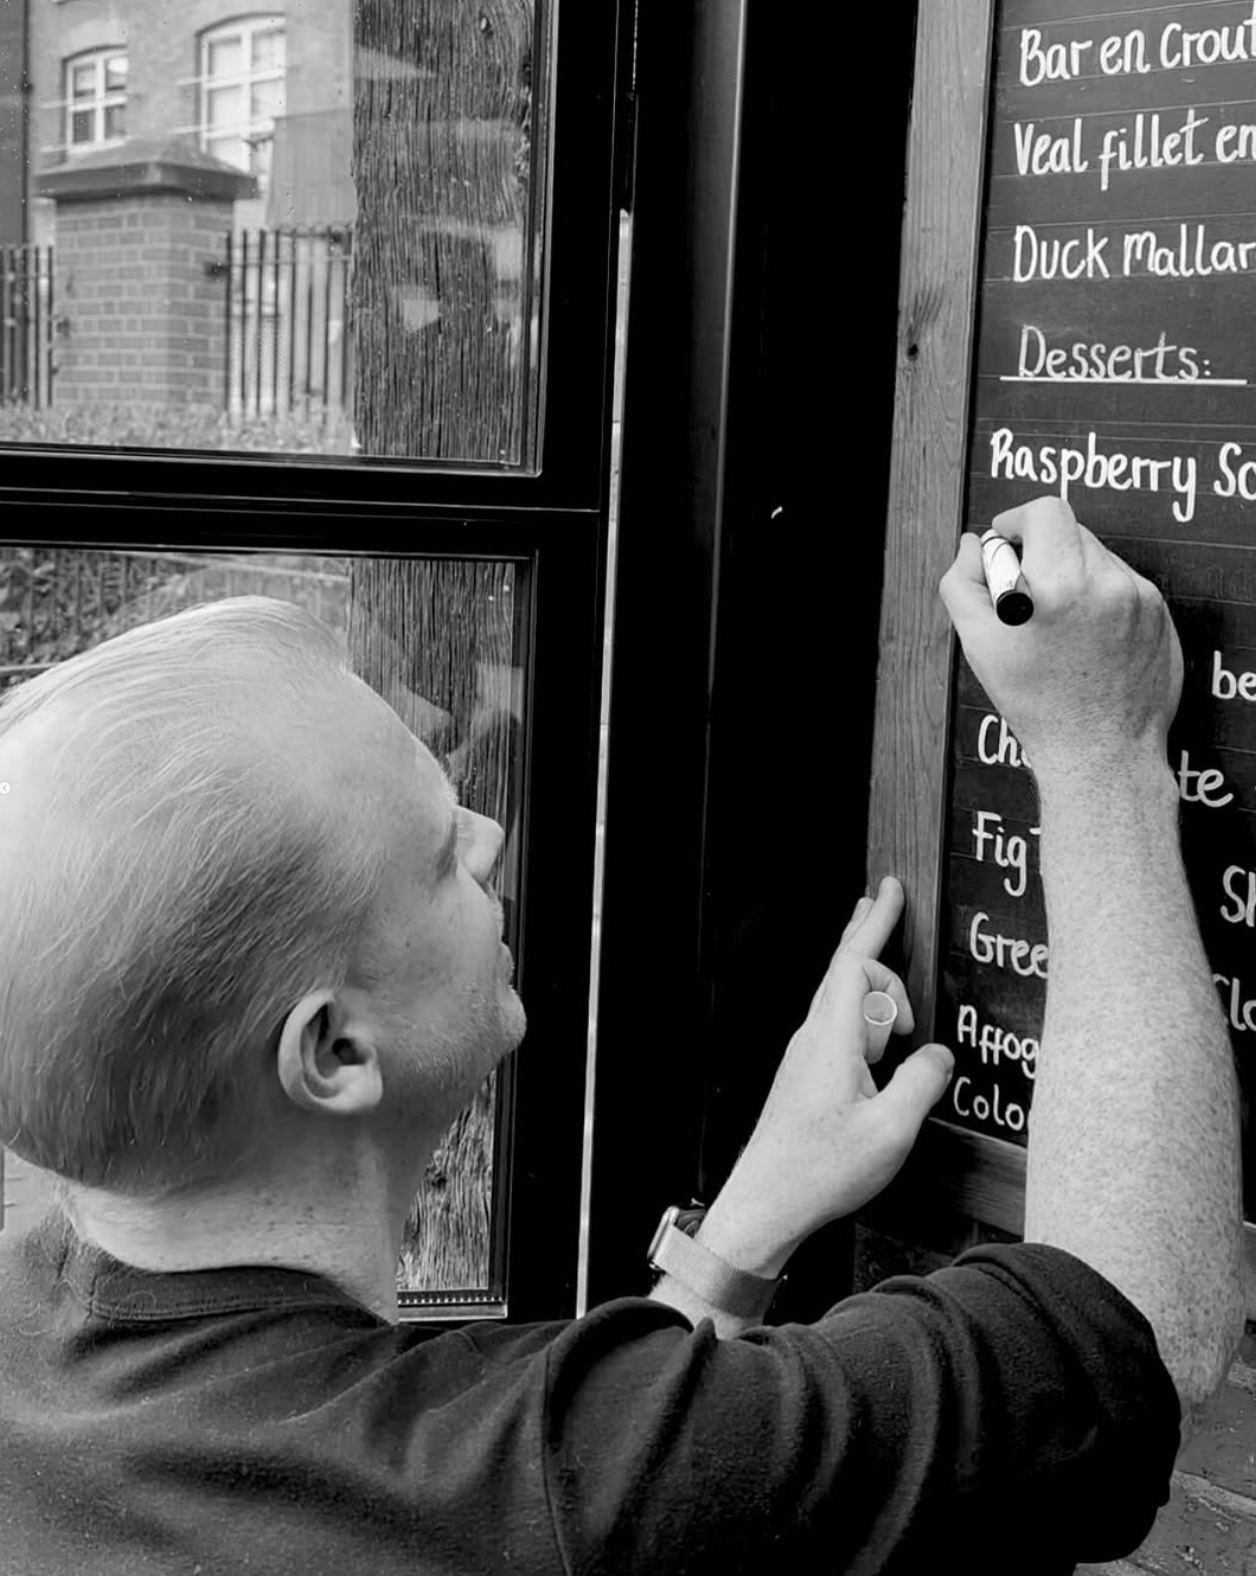 Bar en Crout
Veal fillet en
Duck Mallar
Desserts:
Raspberry So
be
Ch te
Fig
Sh
Gree
Clo
Affog
Colo